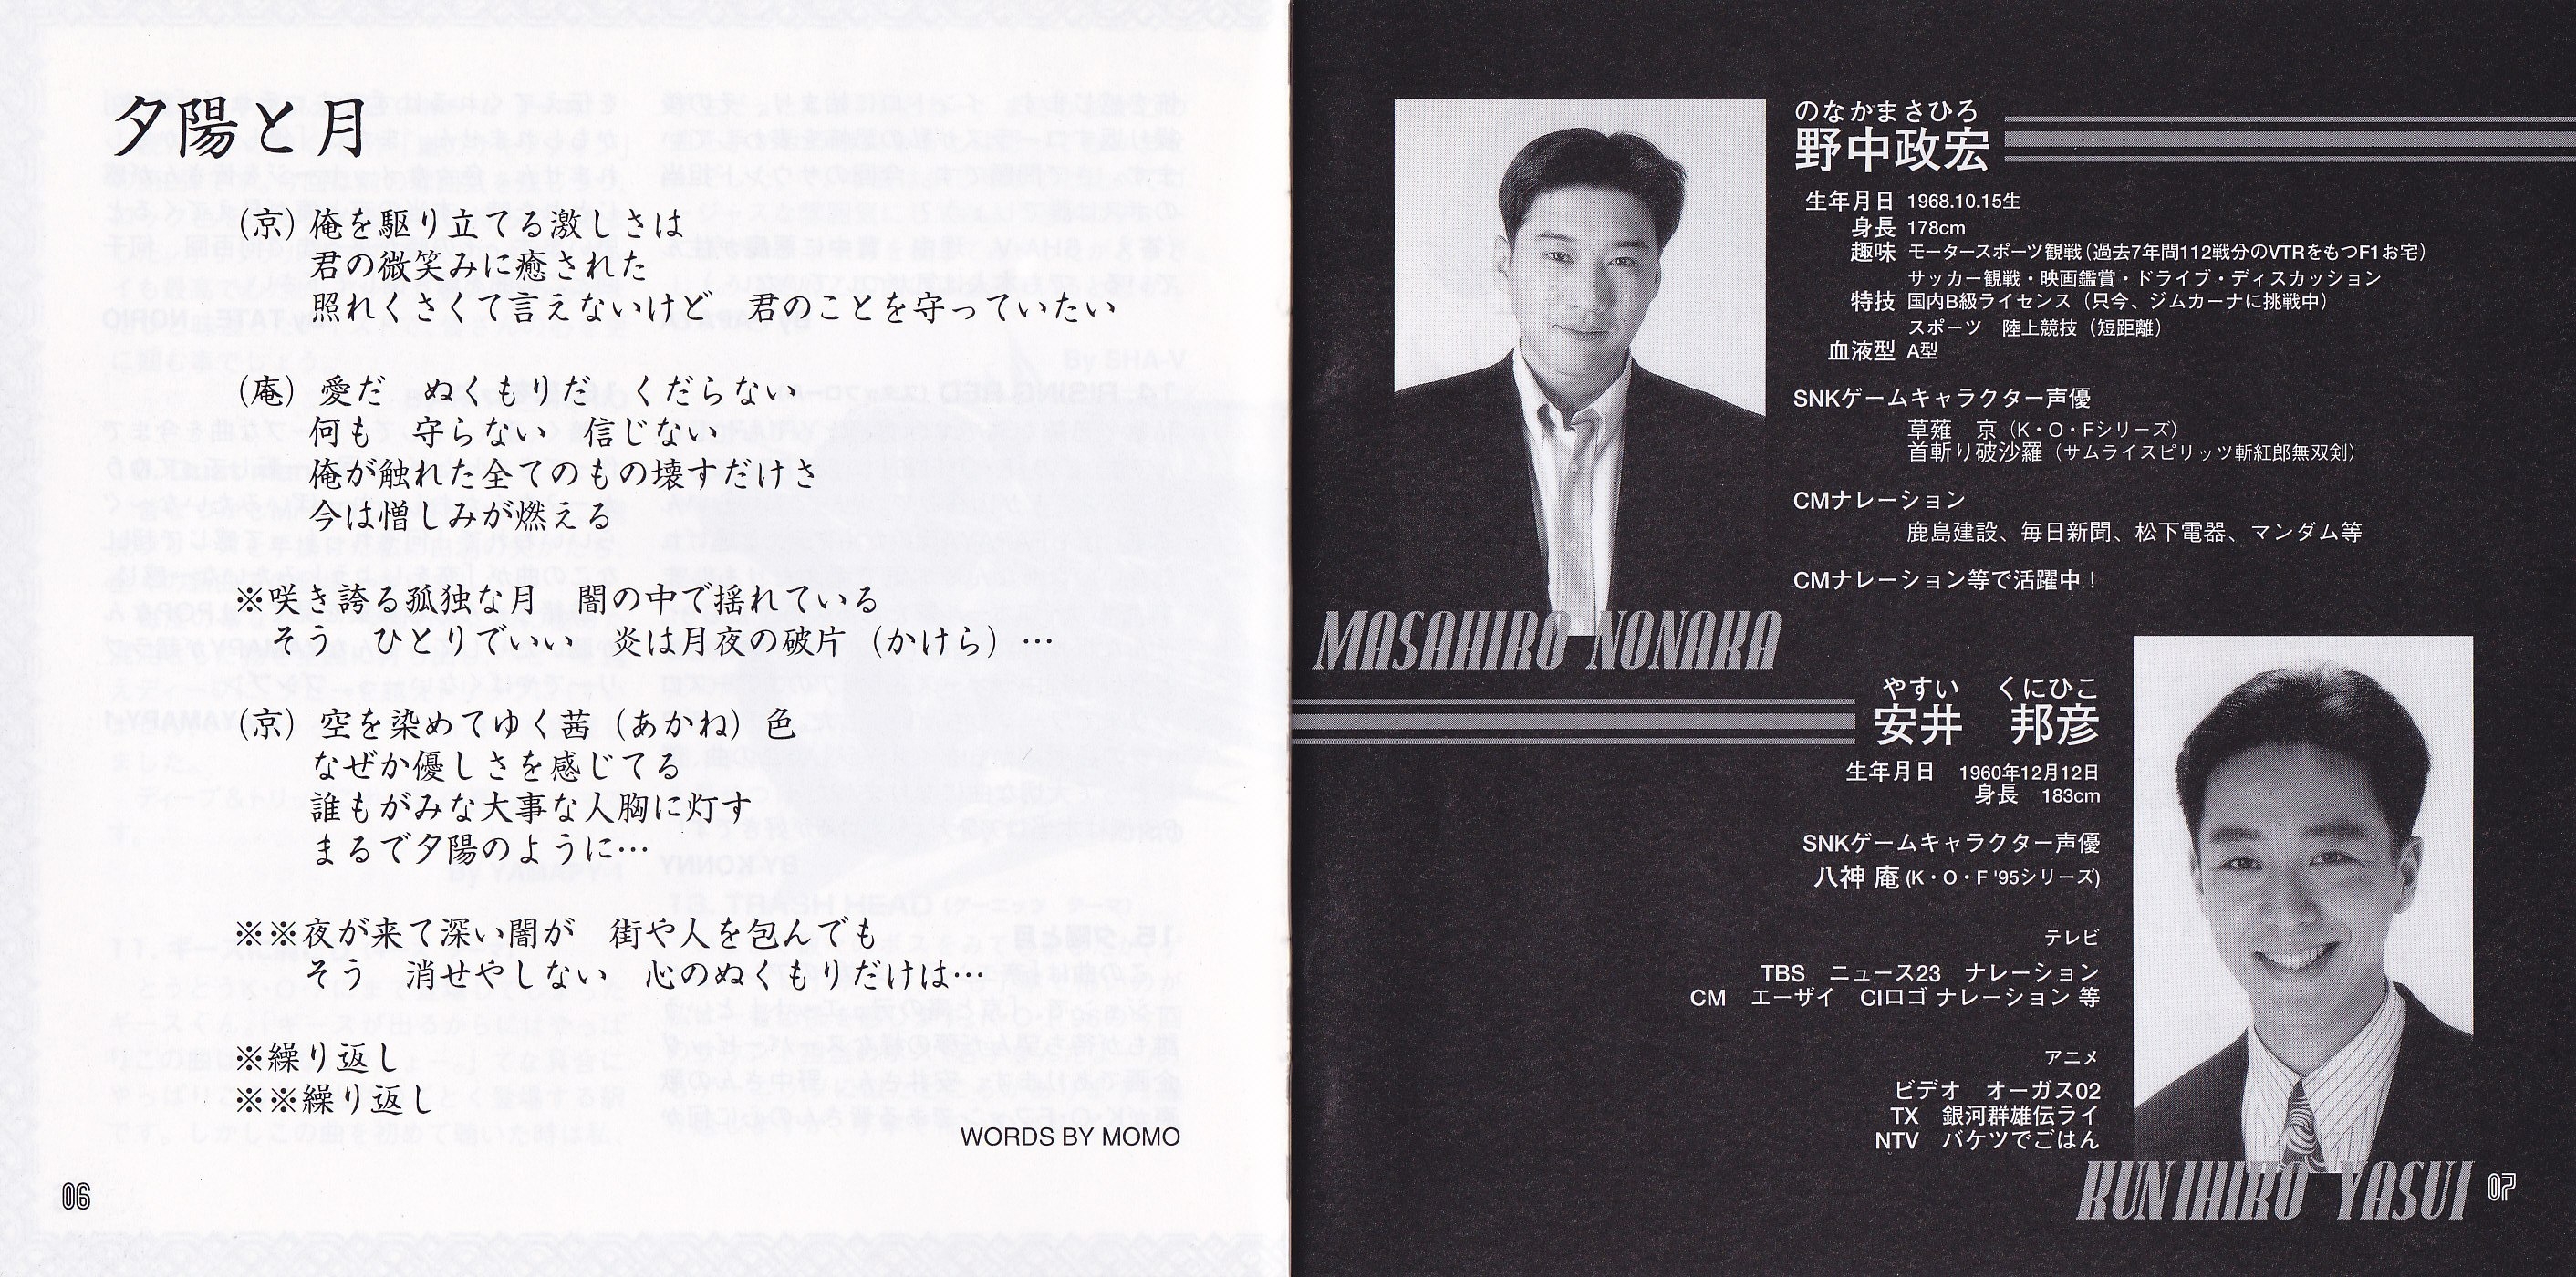 夕陽と月
(京) 俺を駆り立てる激しさは
君の微笑みに癒された
照れくさくて言えないけど　君のことを守っていたい
(庵) 愛だ　ぬくもりだ　くだらない
何も　守らない　信じない
俺が触れた全てのもの壊すだけさ
今は憎しみが燃える
※咲き誇る孤独な月　闇の中で揺れている
そう　ひとりでいい　炎は月夜の破片（かけら）…
(京) 空を染めてゆく茜（あかね）色
なぜか優しさを感じてる
誰もがみな大事な人胸に灯す
まるで夕陽のように…
※※夜が来て深い闇が　街や人を包んでも
そう　消せやしない　心のぬくもりだけは…
※繰り返し
※※繰り返し
WORDS BY MOMO
06
のなかまさひろ
野中政宏
生年月日 1968.10.15生
身長 178cm
趣味 モータースポーツ観戦（過去7年間112戦分のVTRをもつF1お宅）
サッカー観戦・映画鑑賞・ドライブ・ディスカッション
特技 国内B級ライセンス（只今、ジムカーナに挑戦中）
スポーツ　陸上競技（短距離）
血液型 A型
SNKゲームキャラクター声優
草薙　京（K・O・Fシリーズ）
首斬り破沙羅（サムライスピリッツ斬紅郎無双剣）
CMナレーション
鹿島建設、毎日新聞、松下電器、マンダム等
CMナレーション等で活躍中！
MASAHIRO NONAKA
やすい　くにひこ
安井　邦彦
生年月日　1960年12月12日
身長　183cm
SNKゲームキャラクター声優
八神 庵 (K・O・F '95シリーズ)
テレビ
TBS　ニュース23　ナレーション
CM　エーザイ　CIロゴ ナレーション 等
アニメ
ビデオ　オーガス02
TX　銀河群雄伝ライ
NTV　バケツでごはん
KUNIHIRO YASUI
07